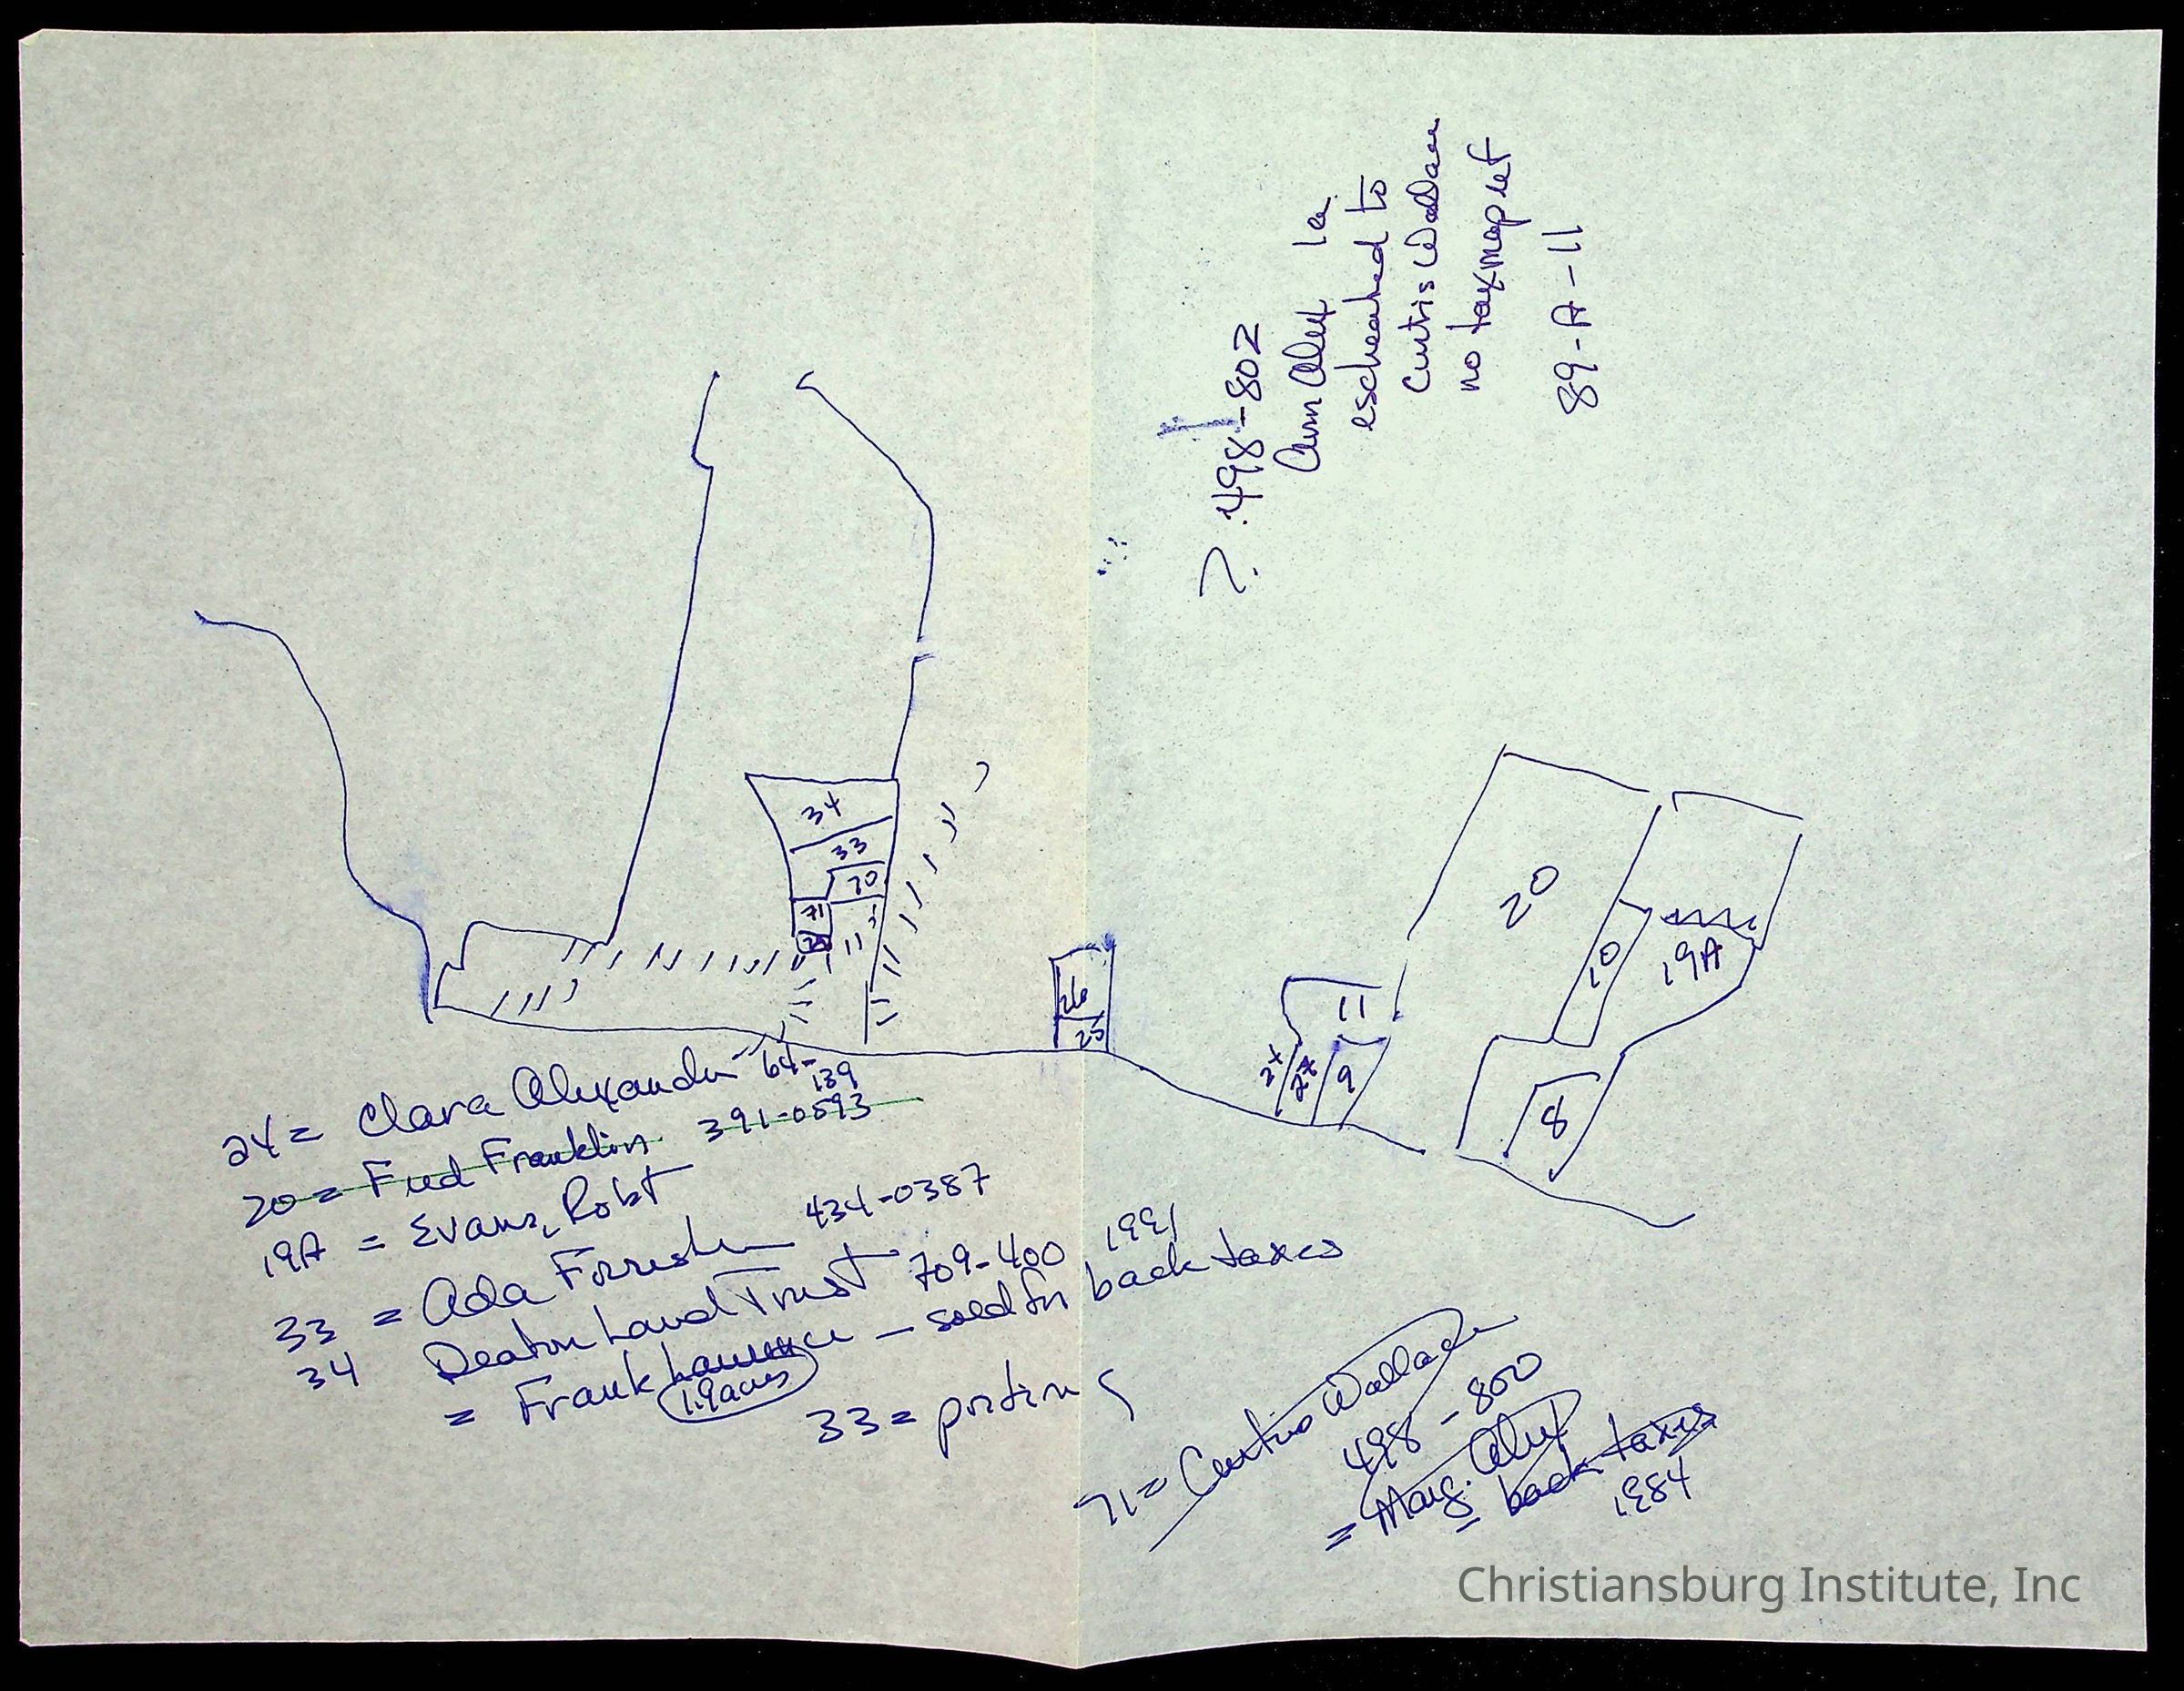 ? 498-802
Ann Alex 1a
escheated to
Curtis Wallace
no taxmap ref
89-A-11
34
33
70
71
70
26
25
20
10
19A
11
24
27
9
8
24 = Clara Alexander 64-
139
20 = Fred Franklin 391-0593
19A = Evans, Robt
33 = Ada Forrester 434-0387
34 Deaton Land Trust 709-400 1991
= Frank Lawrence - sold for back taxes
1.9 acres
33 = portion
71 = Curtis Wallace
498-800
= Marg. Alex
= back taxes
1984
Christiansburg Institute, Inc